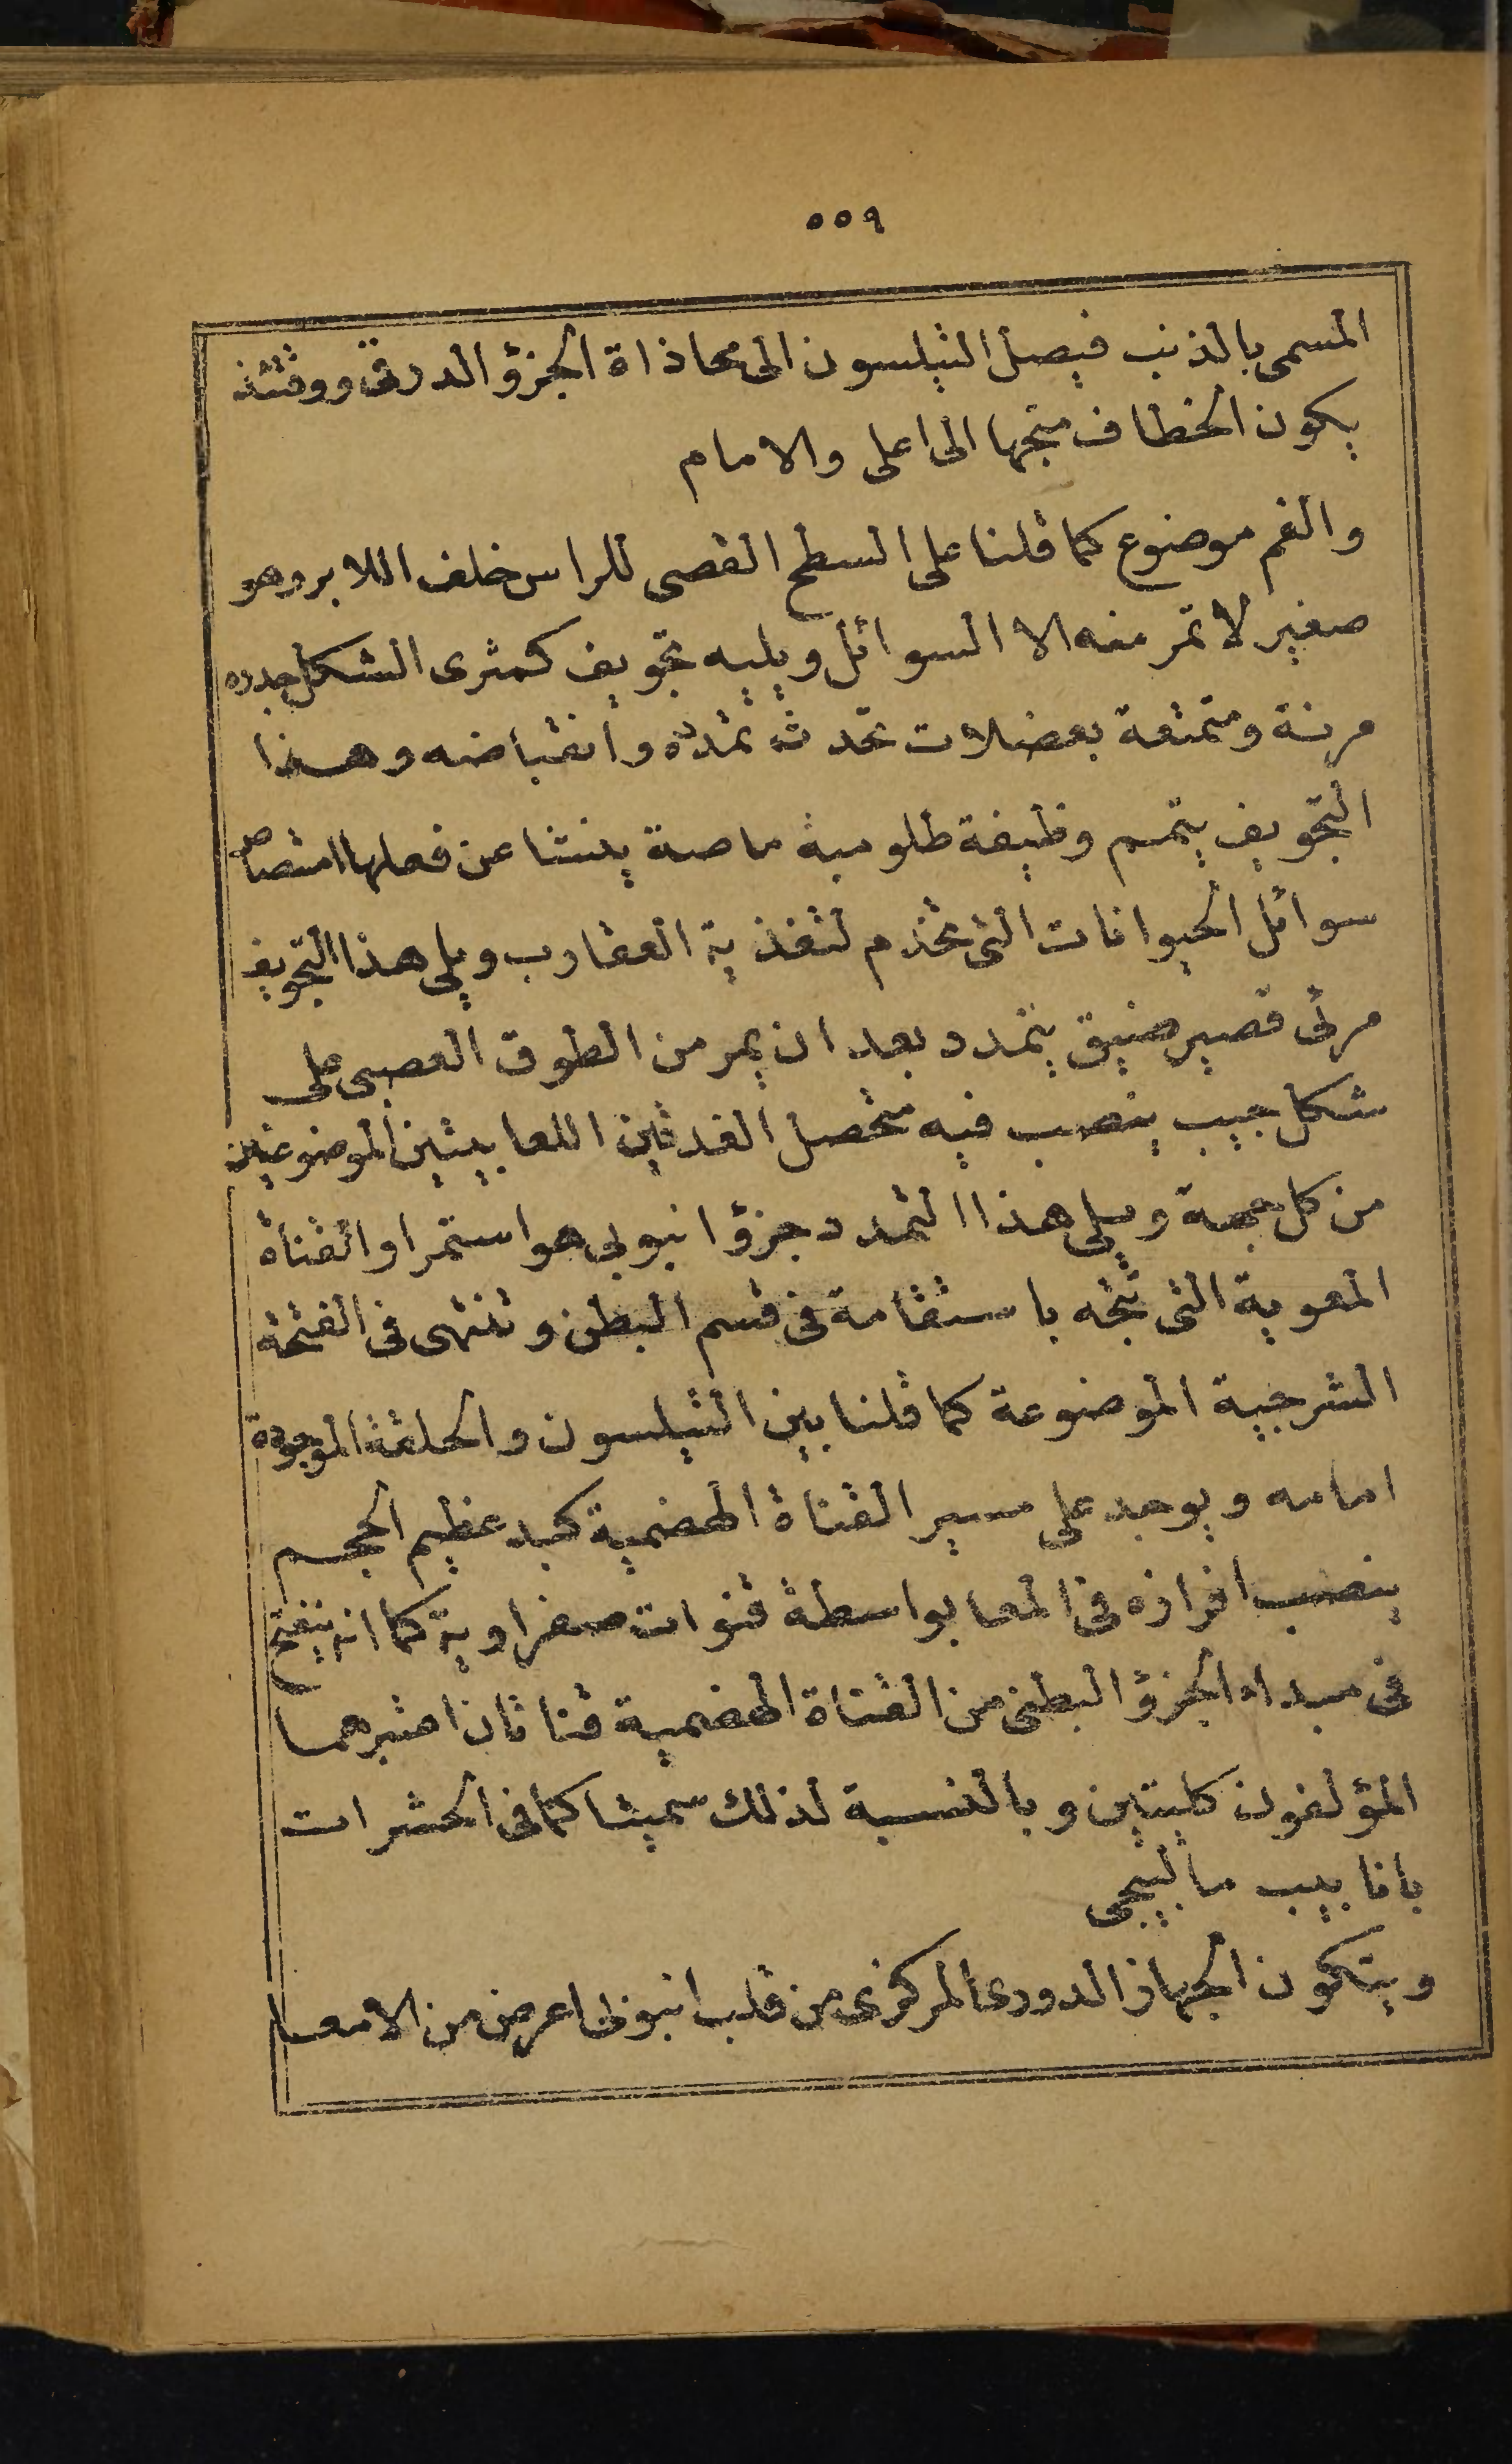 ٥٥٩
المسمى بالذنب فيصل التيلسون الى محاذاة الجزؤ الدرقى ووقتئذ
يكون الخطاف متجها الى اعلى والامام
والفم موضوع كما قلنا على السطح القصى للراس خلف اللابر وهو
صغير لا تمر منه الا السوائل ويليه تجويف كمثرى الشكل جدره
مرنة ومتمتعة بعضلات تحدث تمدده وانقباضه وهذا
التجويف يتمم وظيفة طلومبة ماصة ينشا عن فعلها امتصاص
سوائل الحيوانات التى تخدم لتغذية العقارب ويلى هذا التجويف
مرئ قصير ضيق يتمدد بعد ان يمر من الطوق العصبى على
شكل جيب ينصب فيه متحصل الغدتين اللعابيتين الموضوعتين
من كل جهة ويلى هذا التمدد جزؤ انبوبى هو استمرار القناة
المعوية التى تتجه باستقامة فى قسم البطن وتنتهى فى الفتحة
الشرجية الموضوعة كما قلنا بين التيلسون والحلقة الموجودة
امامه ويوجد على مسير القناة الهضمية كبد عظيم الحجم
ينصب افرازه فى المعا بواسطة قنوات صفراوية كما انه ينفتح
فى مبداء الجزؤ البطنى من القناة الهضمية قناتان اعتبرهما
المؤلفون كليتين وبالنسبة لذلك سميتا كما فى الحشرات
بانابيب مالپيجى
ويتكون الجهاز الدورى المركزى من قلب انبوبى اعرض من الامعا